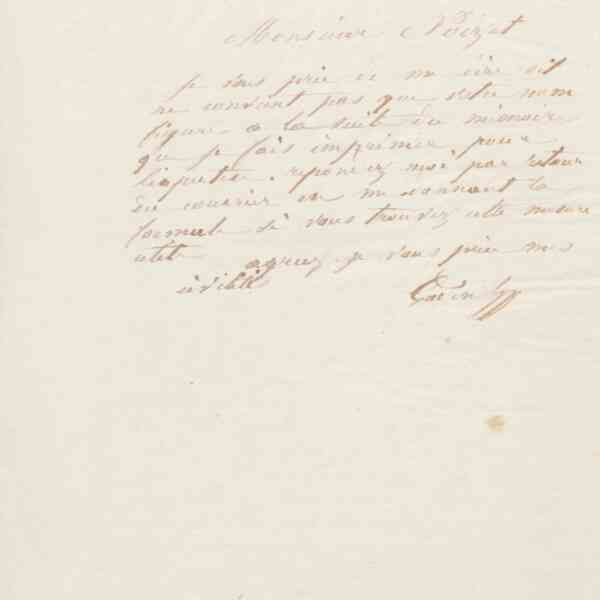 Monsieur Noizet
je vous prie de me dire sil
ne convient pas que votre nom
figure a la suit du mémoire
que je fais imprimer pour
lenquete. repondez moi par retour
du courrier en me donnant la
formule si vous trouvez cette mesure
utile
agreez je vous prie mes
civilités